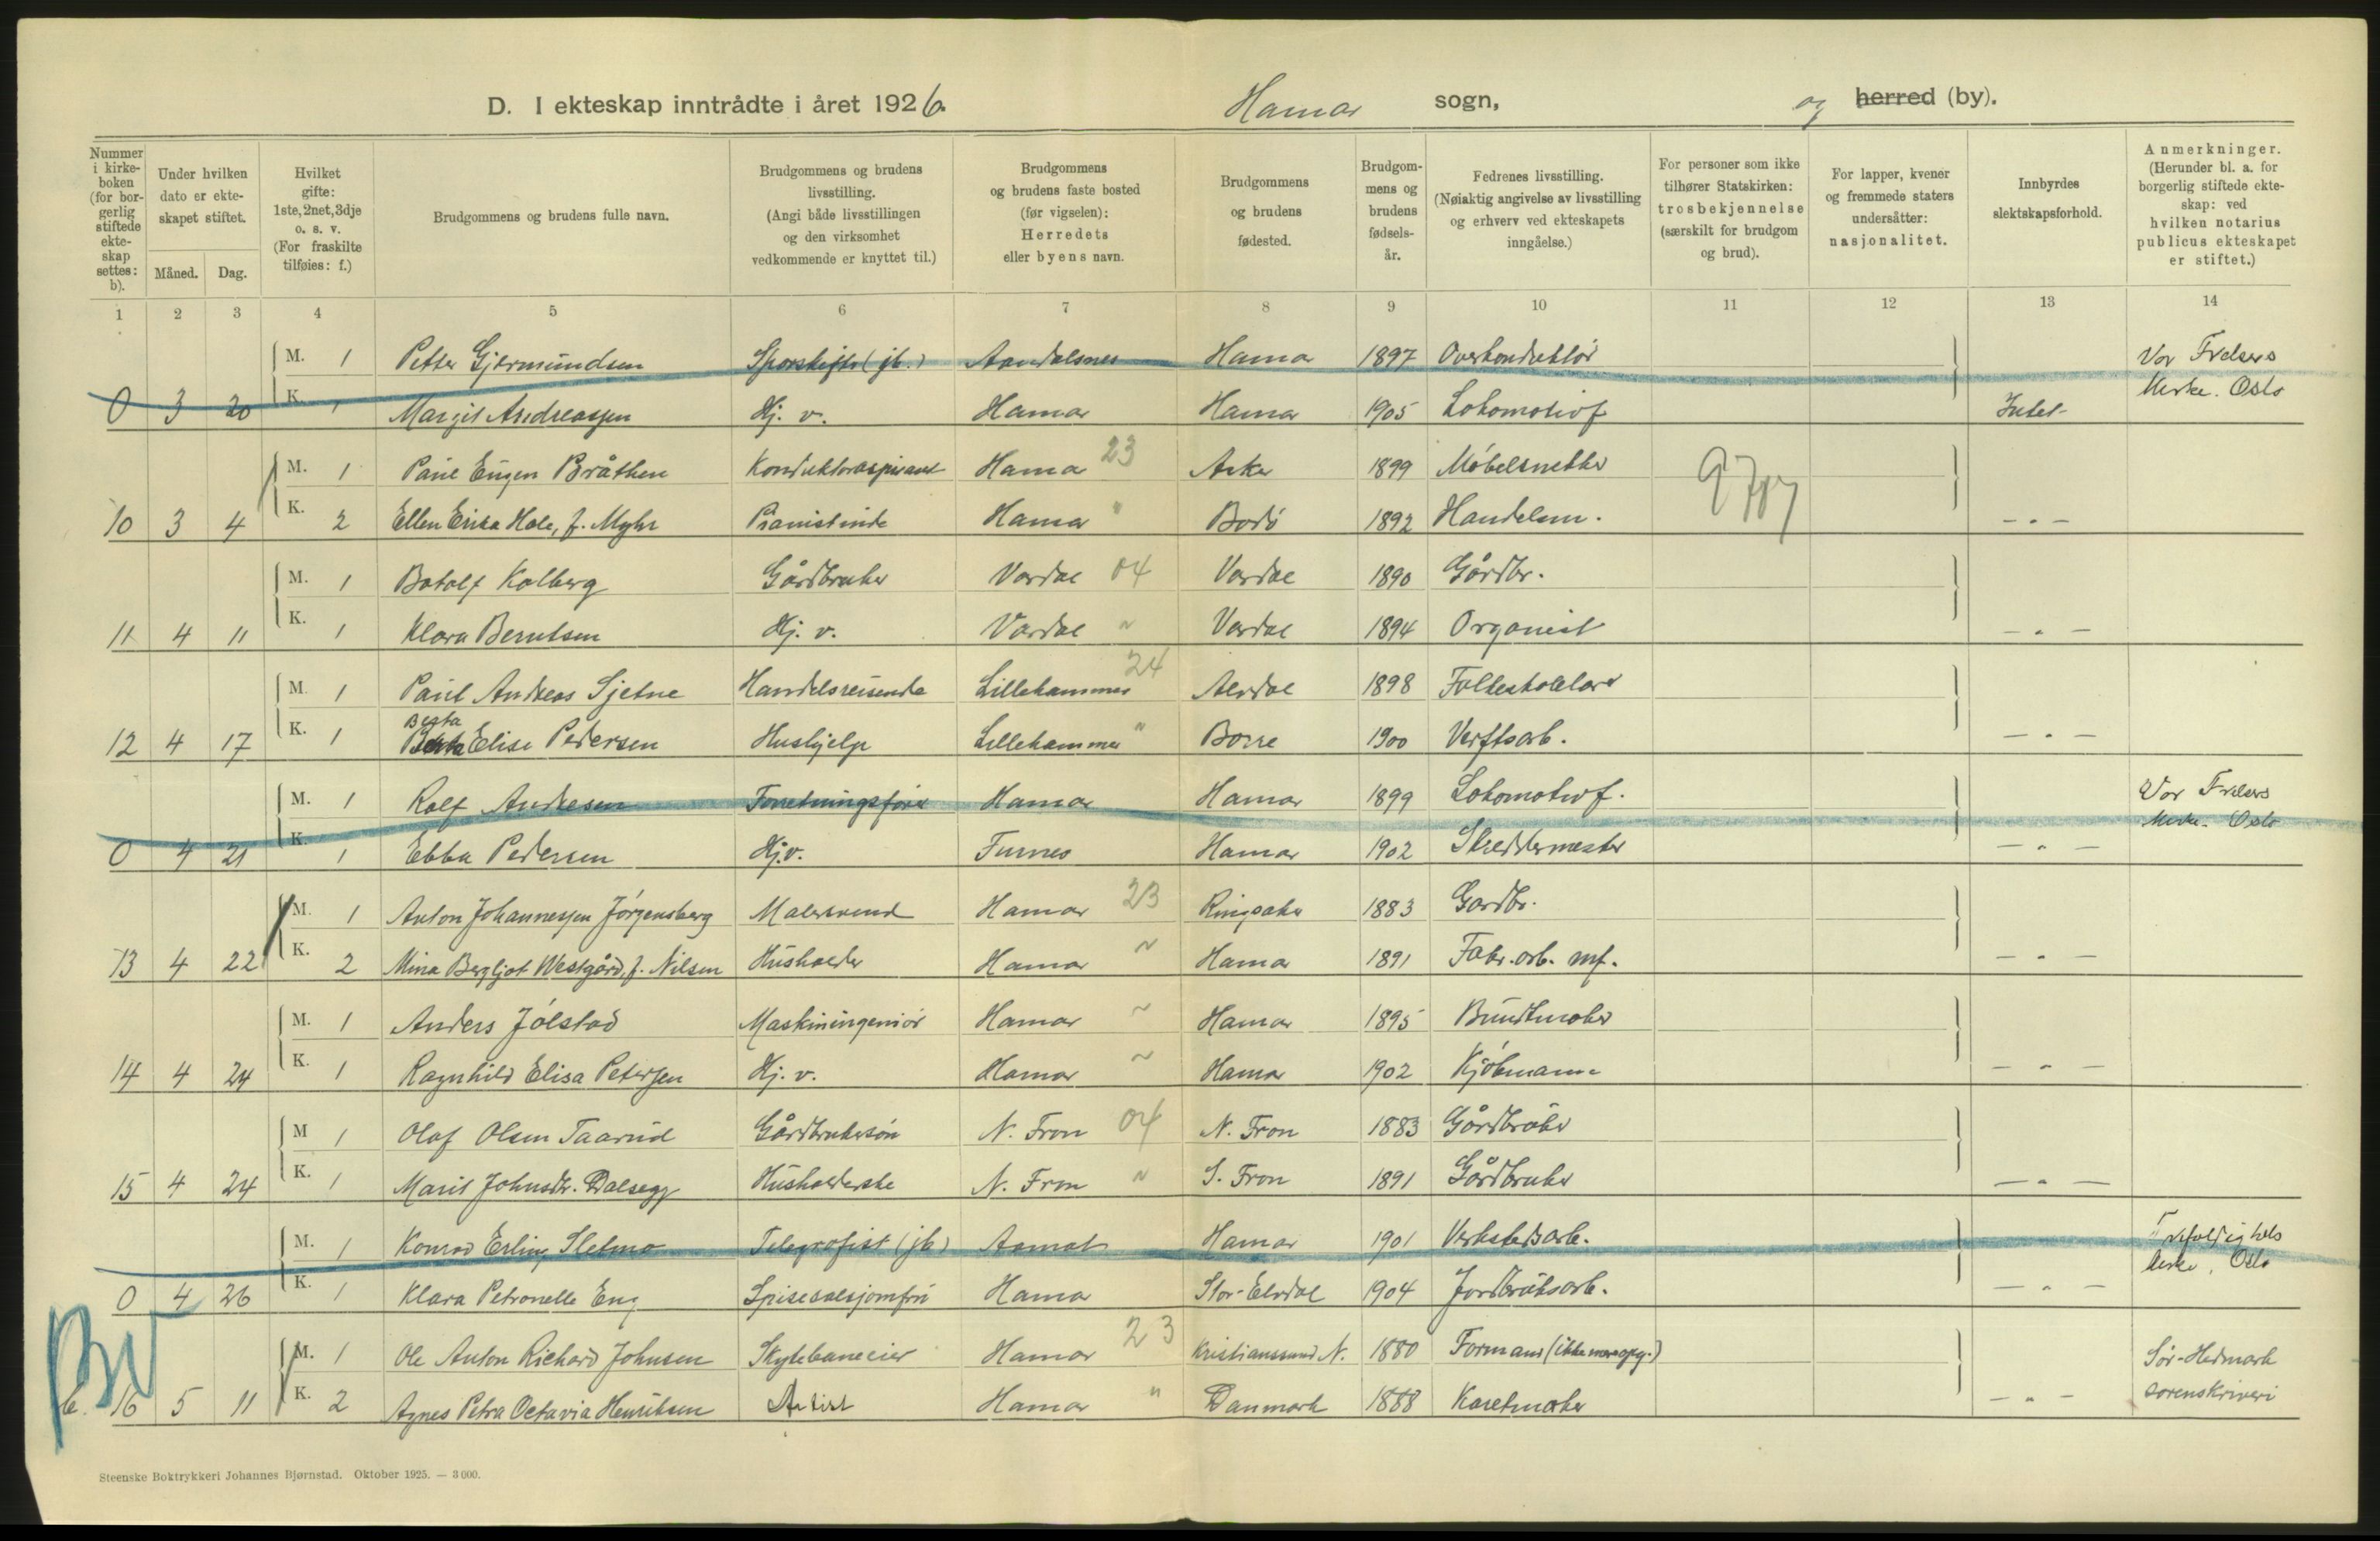 D. I ekteskap inntrådte i året 1926. Hamar sogn, og herred (by).
Nummer i kirkeboken (for borgerlig stiftede ekteskap settes: b).
Under hvilken dato er ekteskapet stiftet.
Måned. Dag.
Hvilket gifte: 1ste, 2net, 3dje o. s. v. (For fraskilte tilføies: f.)
Brudgommens og brudens fulle navn.
Brudgommens og brudens livsstilling. (Angi både livsstillingen og den virksomhet vedkommende er knyttet til.)
Brudgommens og brudens faste bosted (før vigselen): Herredets eller byens navn.
Brudgommens og brudens fødested.
Brudgommens og brudens fødselsår.
Fedrenes livsstilling. (Nøiaktig angivelse av livsstilling og erhverv ved ekteskapets inngåelse.)
For personer som ikke tilhører Statskirken: trosbekjennelse (særskilt for brudgom og brud).
For lapper, kvener og fremmede staters undersåtter: nasjonalitet.
Innbyrdes slektskapsforhold.
Anmerkninger. (Herunder bl. a. for borgerlig stiftede ekteskap: ved hvilken notarius publicus ekteskapet er stiftet.)
1 2 3 4 5 6 7 8 9 10 11 12 13 14
M. 1 Petter Gjermundsen Sporskifter (jb.) Aandalsnes Hamar 1897 Overkonduktør Vor Frelsers
0 3 20 K. 1 Margit Andreassen Hj. v. Hamar Hamar 1905 Lokomotivf. Intet Kirke. Oslo
M. 1 Paul Eugen Bråthen Konduktøraspirant Hamar 23 Aker 1899 Møbelsnekker
10 3 4 K. 2 Ellen Erika Hole, f. Myhr Pianistinde Hamar " Bodø 1892 Handelsm. — " —
M. 1 Botolf Kolberg Gårdbruker Vardal 04 Vardal 1890 Gårdbr.
11 4 11 K. 1 Klara Berntsen Hj. v. Vardal " Vardal 1894 Organist — " —
M. 1 Paul Andreas Sjetne Handelsreisende Lillehammer 24 Alvdal 1898 Folkeskolelærer
Berta
12 4 17 K. 1 Elise Pedersen Hushjelp Lillehammer " Borre 1900 Verftsarb. — " —
M. 1 Rolf Andresen Forretningsfører Hamar Hamar 1899 Lokomotivf. Vor Frelsers
0 4 21 K. 1 Ebba Pedersen Hj.v. Furnes Hamar 1902 Skreddermester — " — Kirke. Oslo
M. 1 Anton Johannessen Jørgensberg Malersvend Hamar 23 Ringsaker 1883 Gardbr.
13 4 22 K. 2 Mina Bergljot Westgård, f. Nilsen Husholder Hamar " Hamar 1891 Fabr. arb. mf. — " —
M. 1 Anders Jølstad Maskiningeniør Hamar " Hamar 1895 Buntmaker
14 4 24 K. 1 Ragnhild Elisa Petersen Hj. v. Hamar " Hamar 1902 Kjøbmann — " —
M 1 Olaf Olsen Taarud Gårdbrukersøn N. Fron 04 N. Fron 1883 Gårdbruker
15 4 24 K. 1 Marit Johnsdtr. Dalsegg Husholderske N. Fron " S. Fron 1891 Gårdbruker — " —
M. 1 Konrad Erling Sletmo Telegrafist (jb) Aamot Hamar 1901 Verkstedsarb. Trefoldighets
0 4 26 K. 1 Klara Petronelle Eng Spisesalsjomfru Hamar Stor-Elvdal 1904 Jordbruksarb. — " — kirke, Oslo
M. 1 Ole Anton Richard Johnsen Skytebaneeier Hamar 23 Kristianssund N. 1880 Formann
b. 16 5 11 K. 2 Agnes Petra Octavia Henriksen Artist Hamar " Danmark 1888 Karetmaker — " —
Sør-Hedmark
sorenskriveri
Steenske Boktrykkeri Johannes Bjørnstad. Oktober 1925. — 3 000.